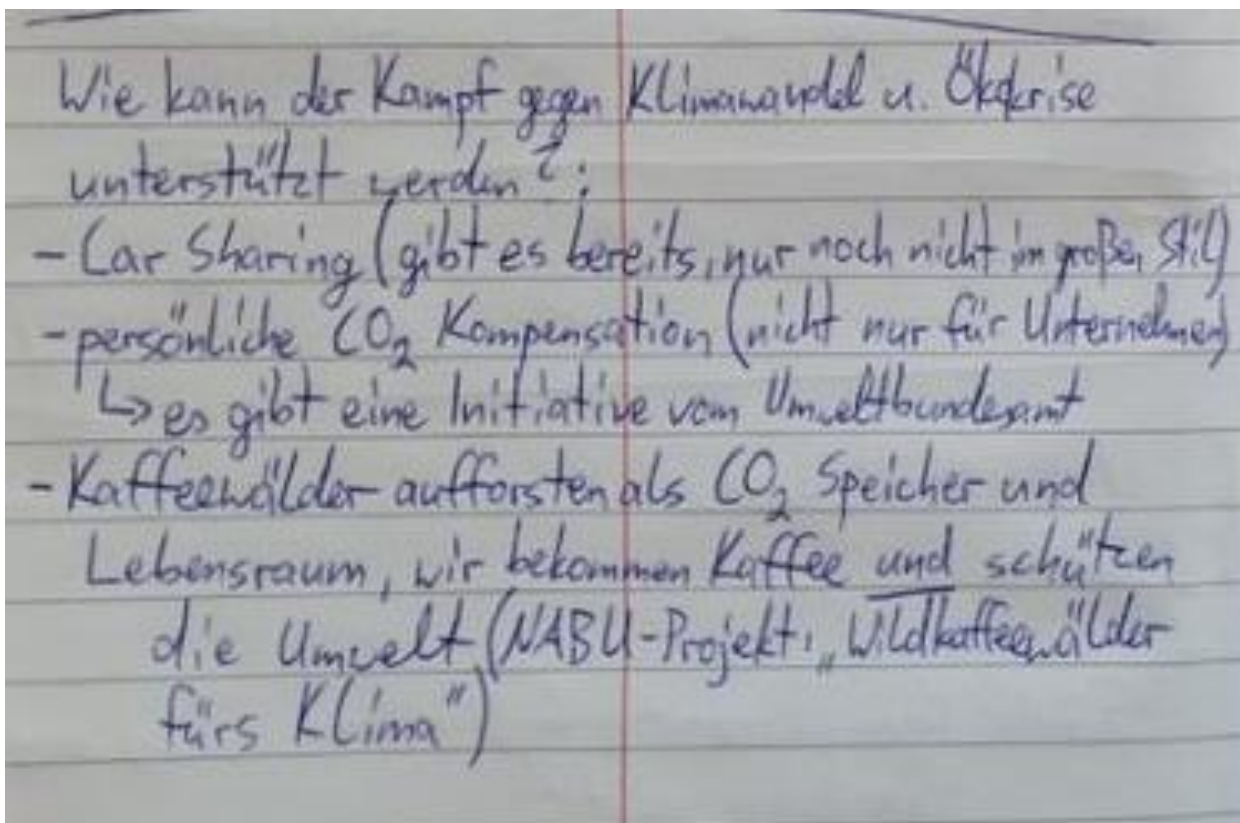 Wie kann der Kampf gegen Klimawandel u. Ökokrise
unterstützt werden?:
- Car Sharing (gibt es bereits, nur noch nicht im großen Stil)
- persönliche CO₂ Kompensation (nicht nur für Unternehmen)
↳ es gibt eine Initiative vom Umweltbundesamt
- Kaffeewälder aufforsten als CO₂ Speicher und
Lebensraum, wir bekommen Kaffee und schützen
die Umwelt (NABU-Projekt: „Wildkaffeewälder
fürs Klima")